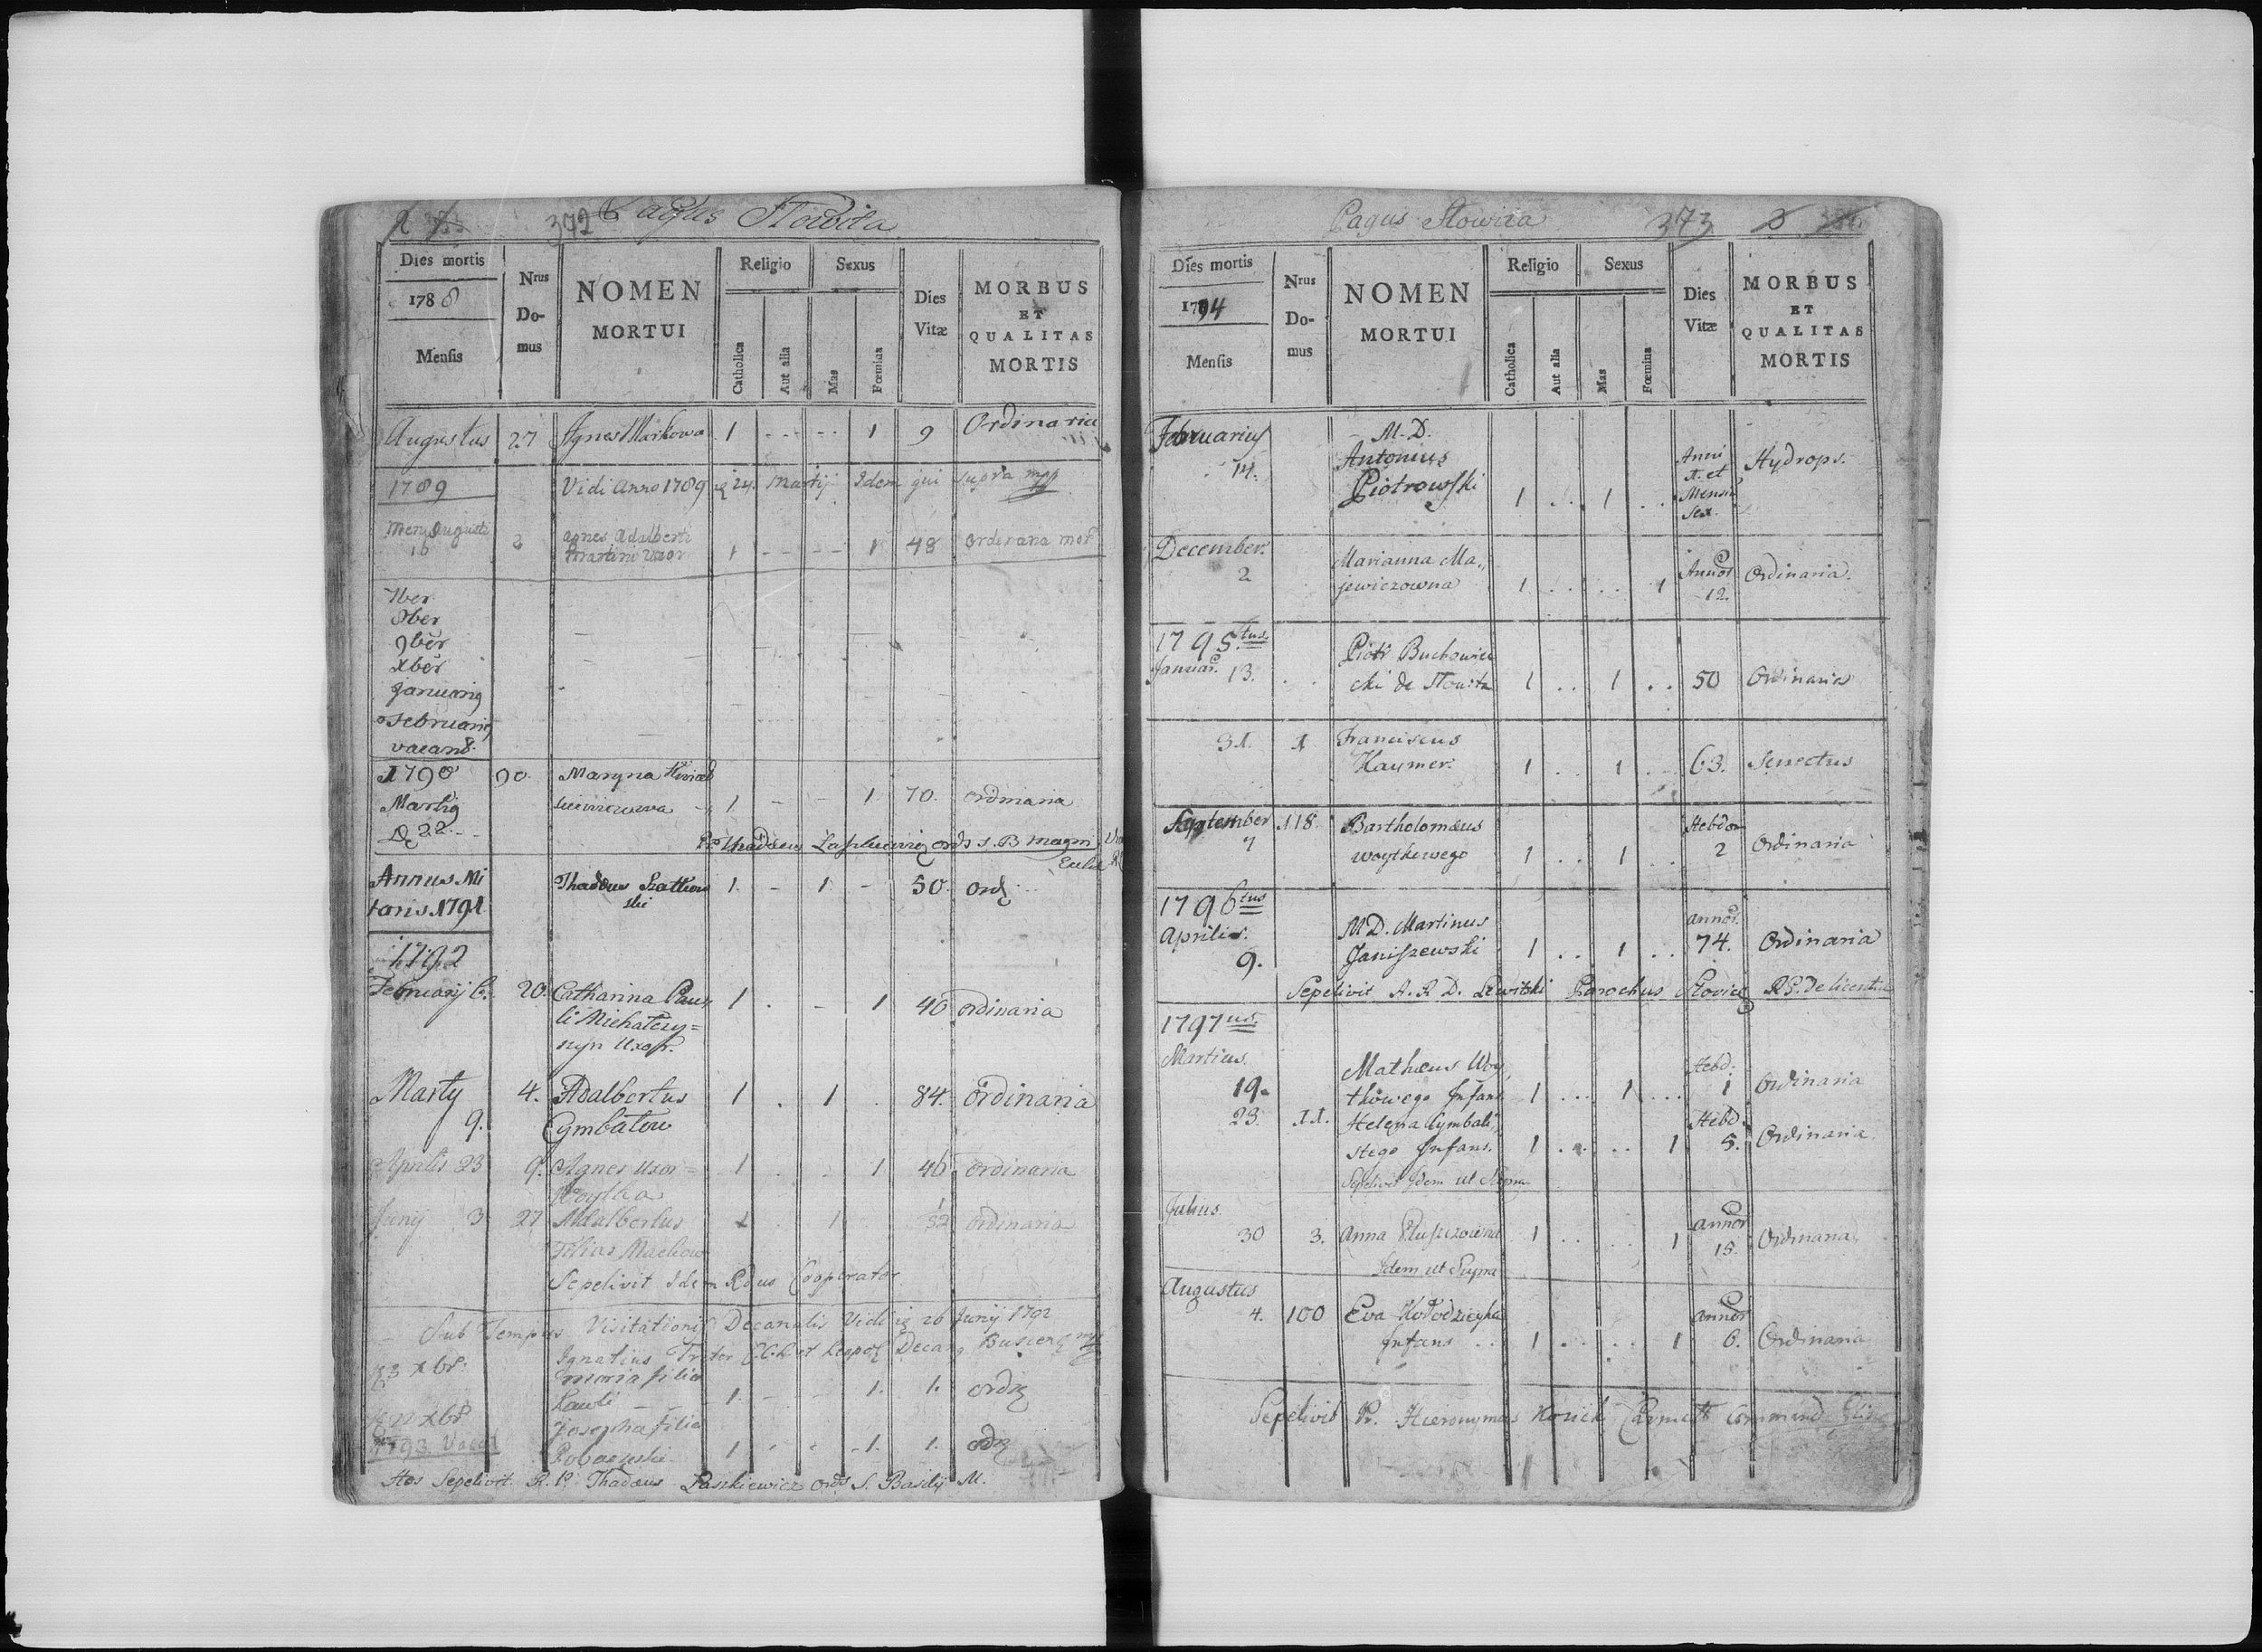 372 Pagus Slowita
Dies mortis
1788
Mensis
Nrus
Do-
mus
NOMEN
MORTUI
Religio
Catholica
Aut alia
Sexus
Mas
Fœmina
Dies
Vitæ
MORBUS
ET
QUALITAS
MORTIS
Augustus 27 Agnes Markowa 1 - - - - 1 9 Ordinaria
1789 Vidi Anno 1789 24 Martij Idem qui supra mpp
Mens Augusti Agnes Adalberti
16 3 Martini uxor 1 - - - - 1 48 Ordinaria mors
7ber
8ber
9ber
Xber
Januarij
Februarij
vacant
1790 90 Maryna
Martij 1 - - 1 70. ordinaria
22
Thadæus ords S. B. Magni
Annus Mi Thaddeus 1. - 1. - 50. ord
taris 1791 ski
1792
Februarij 6. 20. Catharina Pau 1 . - 1 46 ordinaria
li Michalczy=
nyn Uxor.
Marty 4. Adalbertus 1 . 1 . 84. ordinaria
9. Cymbalow
Aprilis 23 9. Agnes uxor = 1 . . 1 46 ordinaria
Woytka
Junij 3 27 Adalbertus 1 . 1 ordinaria
Filius Mackow
Sepelivit Idem Rdus Cooperator
Sub Tempus Visitationis Decanalis Vidi 26 Junij 1792
Ignatius Decan Buscens mpp
3 Xbr. Maria filia
Pauli - - 1. - - 1. 1. ord
22 Xbr Josepha filia
1793 Vacat 1 - - 1. 1. ord
Hos Sepelivit R. P. Thadæus Laszkiewicz Ords S. Basilij M.
Pagus Slowita 373
Dies mortis
1794
Mensis
Nrus
Do-
mus
NOMEN
MORTUI
Religio
Catholica
Aut alia
Sexus
Mas
Fœmina
Dies
Vitæ
MORBUS
ET
QUALITAS
MORTIS
Februarius M. D.
14. Antonius Anni Hydrops.
Piotrowski 1 . . 1 . . et Mensiu
sex.
December. Marianna Ma,,
2 jewiczowna 1 . . . . 1 Annor 12. Ordinaria.
1795.tus Piotr Buchowiec
Januar. 13. cki de Slowita 1 . . 1 . . 50 Ordinaria
31. 1 Franciscus
Haymer. 1 . . 1 . . 63. Senectus
September 118. Bartholomæus Hebdom
7 woytkowego 1 . . 1 . . 2 Ordinaria
1796tus
Aprilis. M D. Martinus annor.
9. Janiszewski 1 . . 1 . . 74. Ordinaria
Sepelivit A. R. D. Lewitski Parochus R G. De licentia
1797us.
Martius. Mathæus Woy, Hebd:
19. tkowego Infans 1 . . . 1 . . . 1 Ordinaria
23. 11. Helena Cymbali, Hebd.
stego Infans. 1 . . . . 1 5. Ordinaria
Sepelivit Idem ut Supra
Julius. annor
30 3. Anna 1 . . . . 1 15. Ordinaria
Idem ut Supra
Augustus
4. 100 Eva Kołodzieyka annor
Infans . . 1 . . . . 1 6. Ordinaria
Sepelivit Pr. Hieronymus